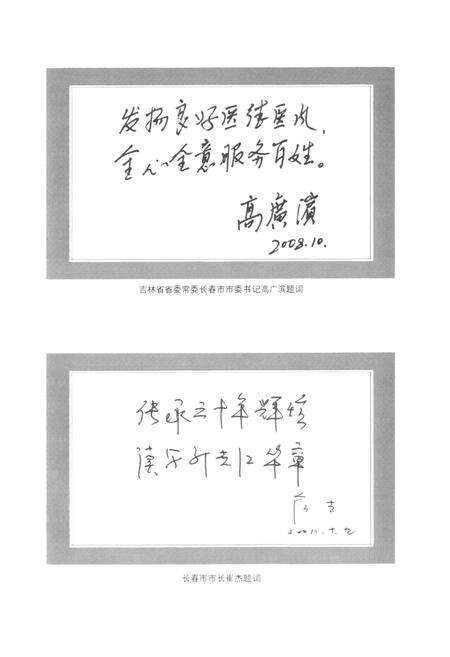 发扬良好医德医风，
全心全意服务百姓。
高廣濱
2008.10.
吉林省省委常委长春市市委书记高广滨题词
传承三十年辉煌
章
长春市市长崔杰题词